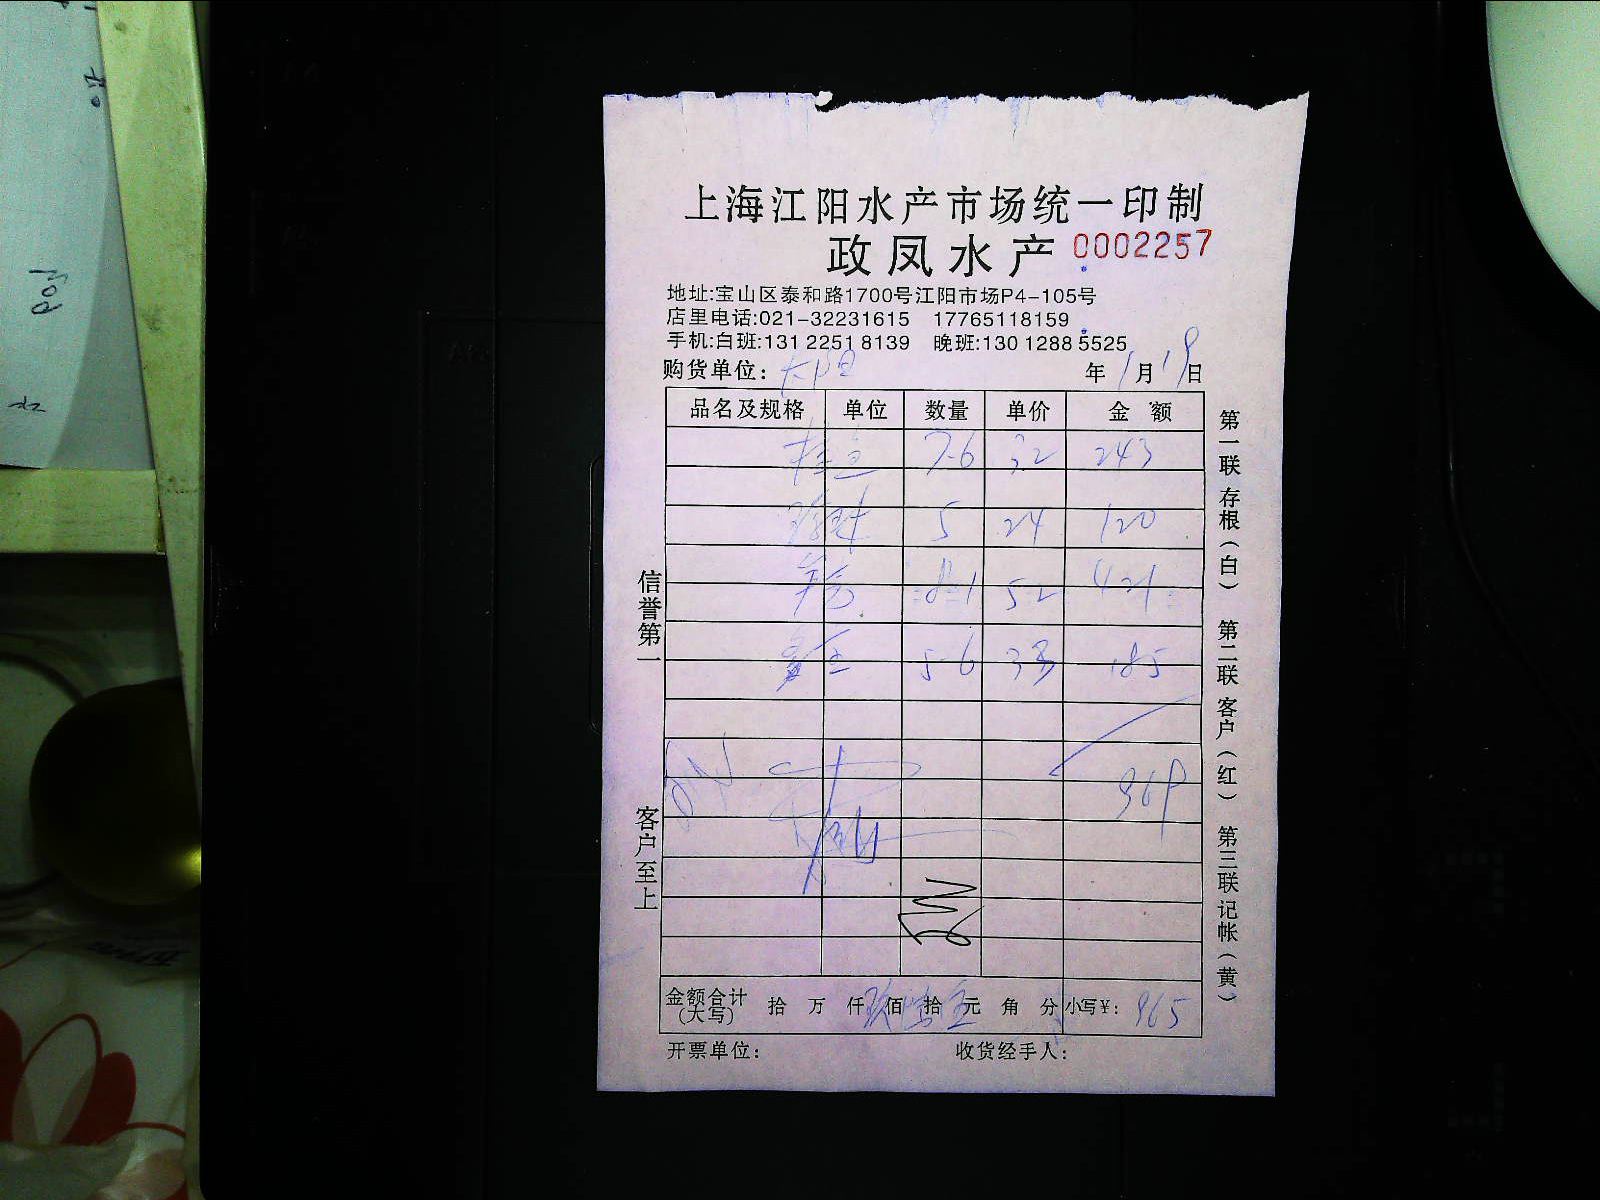 上海江阳水产市场统一印制
政凤水产 0002257
地址:宝山区泰和路1700号江阳市场P4-105号
店里电话:021-32231615 17765118159
手机:白班:131 2251 8139 晚班:130 1288 5525
购货单位: 年1月19日
品名及规格 单位 数量 单价 金额
7.6 32 243
5 24 120
8.1 52 421
5.6 33 185
969
金额合计(大写) 拾 万 仟 玖佰 陆拾 伍元 角 分 小写¥: 965
开票单位: 收货经手人:
信誉第一
客户至上
第一联存根(白) 第二联客户(红) 第三联记帐(黄)